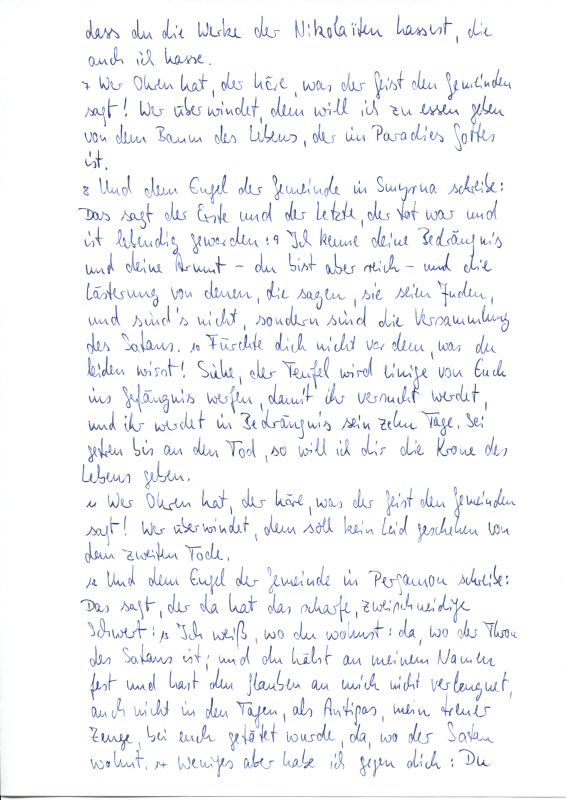 dass du die Werke der Nikolaiten hassest, die
auch ich hasse.
7 Wer Ohren hat, der höre, was der Geist den Gemeinden
sagt! Wer überwindet, dem will ich zu essen geben
von dem Baum des Lebens, der im Paradies Gottes
ist.
8 Und dem Engel der Gemeinde in Smyrna schreibe:
Das sagt der Erste und der Letzte, der tot war und
ist lebendig geworden: 9 Ich kenne deine Bedrängnis
und deine Armut - du bist aber reich - und die
Lästerung von denen, die sagen, sie seien Juden,
und sind's nicht, sondern sind die Versammlung
des Satans. 10 Fürchte dich nicht vor dem, was du
leiden wirst! Siehe, der Teufel wird einige von Euch
ins Gefängnis werfen, damit ihr versucht werdet,
und ihr werdet in Bedrängnis sein zehn Tage. Sei
getreu bis an den Tod, so will ich dir die Krone des
Lebens geben.
11 Wer Ohren hat, der höre, was der Geist den Gemeinden
sagt! Wer überwindet, dem soll kein Leid geschehen von
dem zweiten Tode.
12 Und dem Engel der Gemeinde in Pergamon schreibe:
Das sagt, der da hat das scharfe, zweischneidige
Schwert: 13 Ich weiß, wo du wohnst: da, wo der Thron
des Satans ist; und du hälst an meinem Namen
fest und hast den Glauben an mich nicht verleugnet,
auch nicht in den Tagen, als Antipas, mein treuer
Zeuge, bei euch getötet wurde, da, wo der Satan
wohnt. 14 Weniges aber habe ich gegen dich: Du